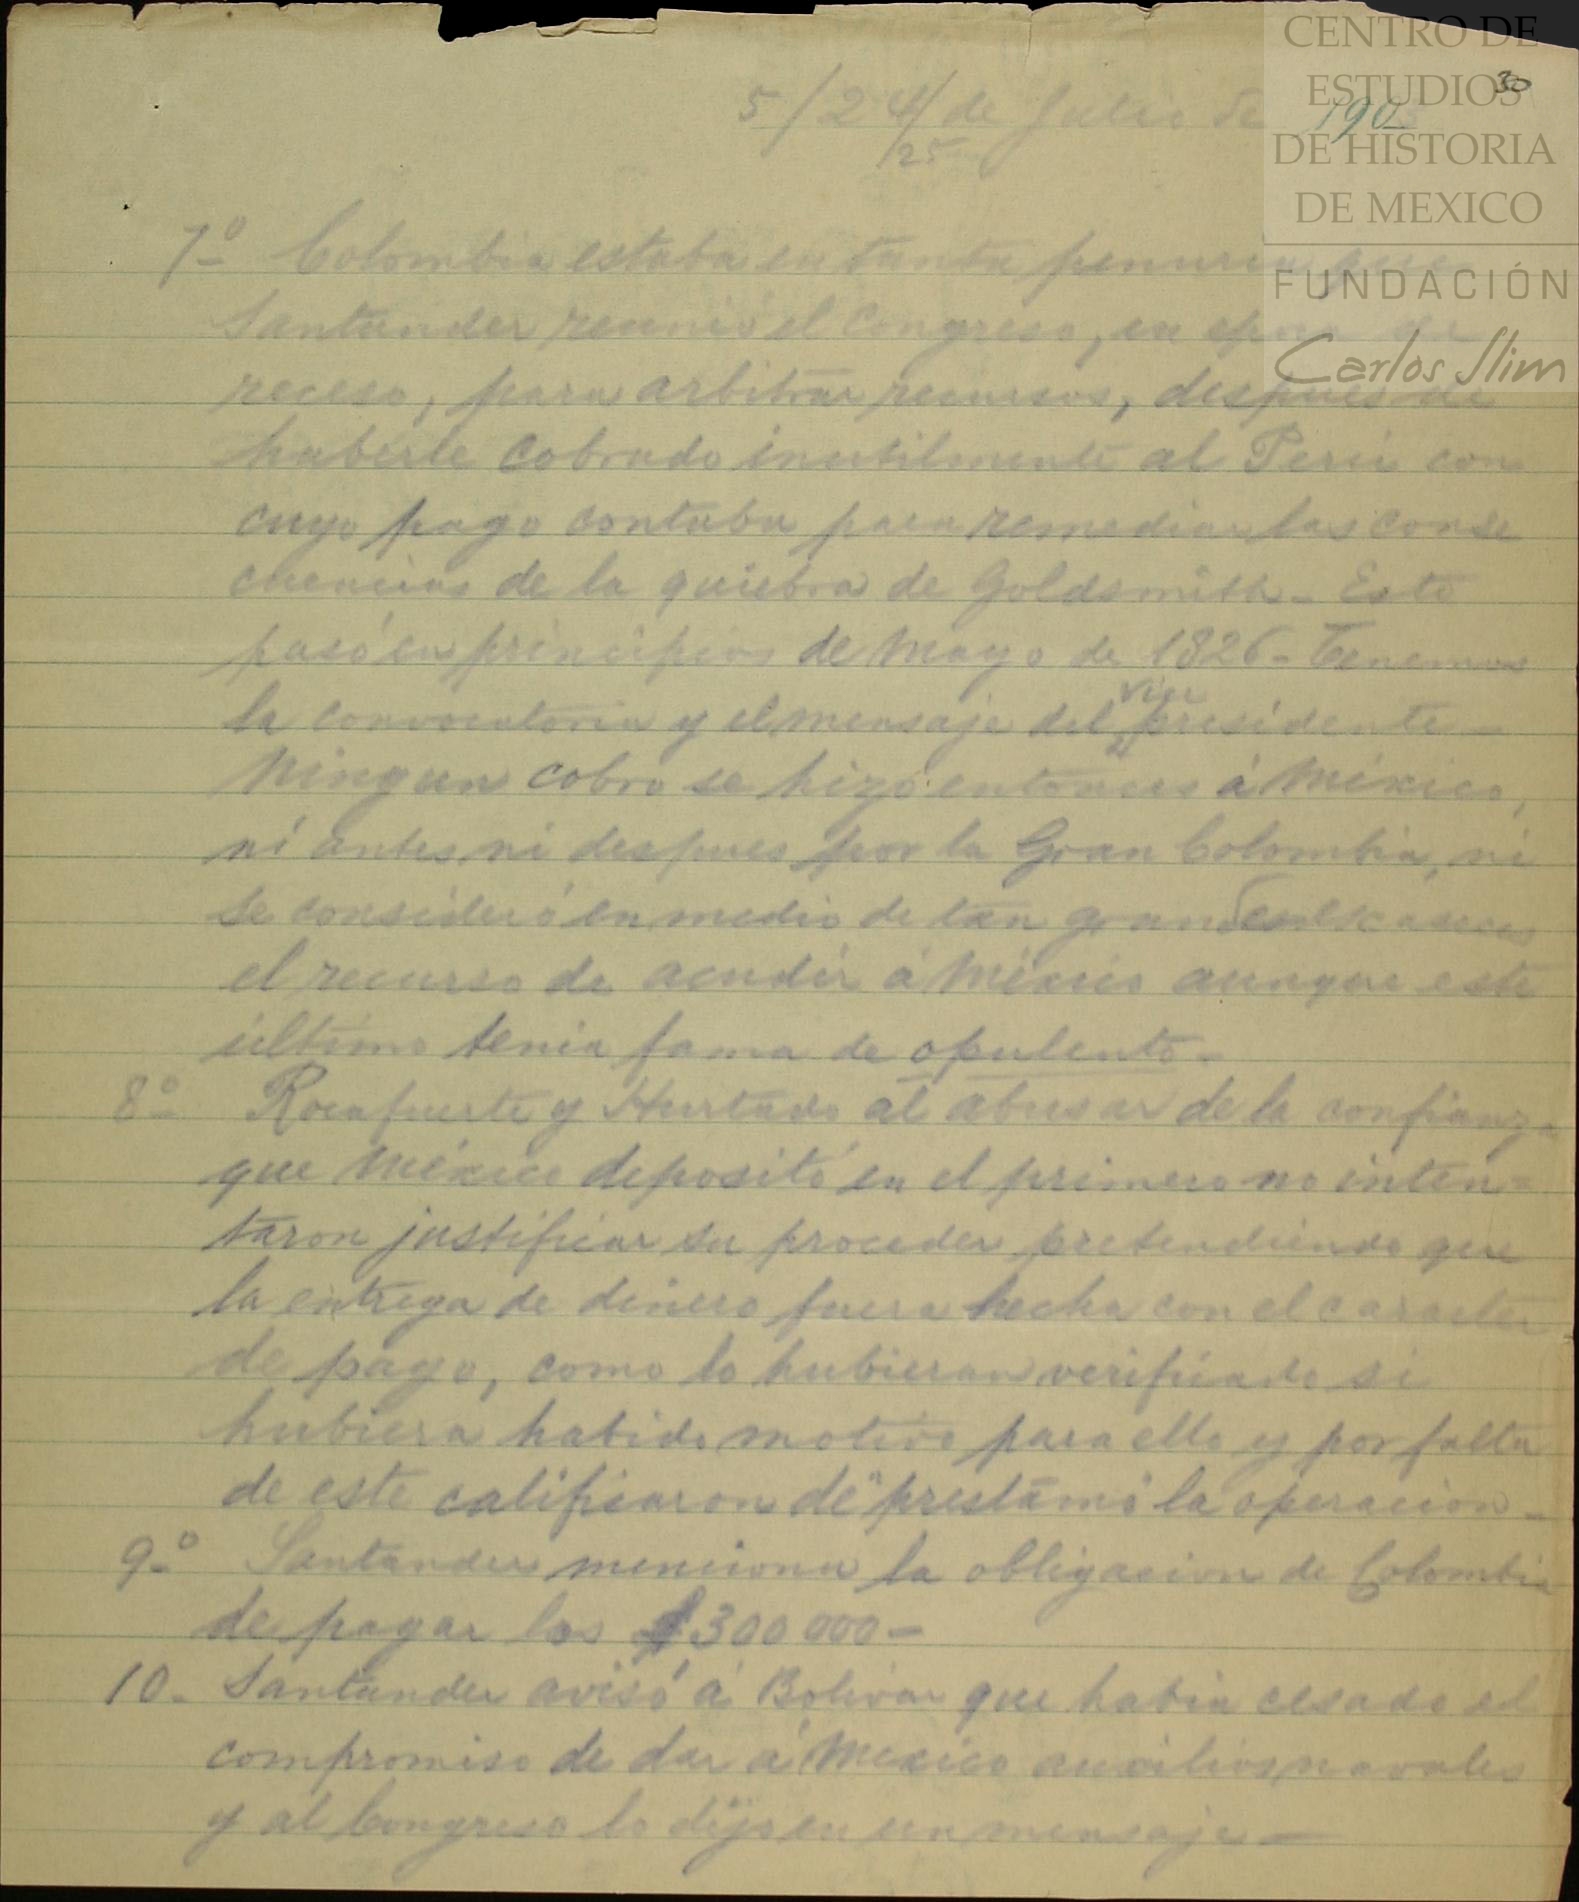 CENTRO DE
ESTUDIOS
DE HISTORIA
DE MEXICO
FUNDACIÓN
Carlos Slim
30
5/24/de Julio de 190
25
7º Colombia estaba en tanta penuria que
Santander reunió el Congreso, en epoca de
receso, para arbitrar recursos, despues de
haberle cobrado inutilmente al Perú con
cuyo pago contaba para remediar las conse
cuencias de la quiebra de Goldsmith - Esto
pasó en principios de Mayo de 1826 - Tenemos
la convocatoria y el mensaje del vice presidente -
Ningun cobro se hizo entonces á México,
ni antes ni despues por la Gran Colombia, ni
se consideró en medio de tan grandes escaseces
el recurso de acudir á México aunque este
último tenia fama de opulento -
8º Rocafuerte y Hurtado al abusar de la confianza
que México depositó en el primero no inten=
taron justificar su proceder pretendiendo que
la entrega de dinero fuera hecha con el caracter
de pago, como lo hubieran verificado si
hubiera habido motivo para ello y por falta
de este calificaron de "prestamo" la operacion -
9º Santander menciona la obligacion de Colombia
de pagar los $300 000 -
10 - Santander avisó á Bolivar que habia cesado el
compromiso de dar á Mexico auxilios navales
y al Congreso lo dijo en un mensaje -